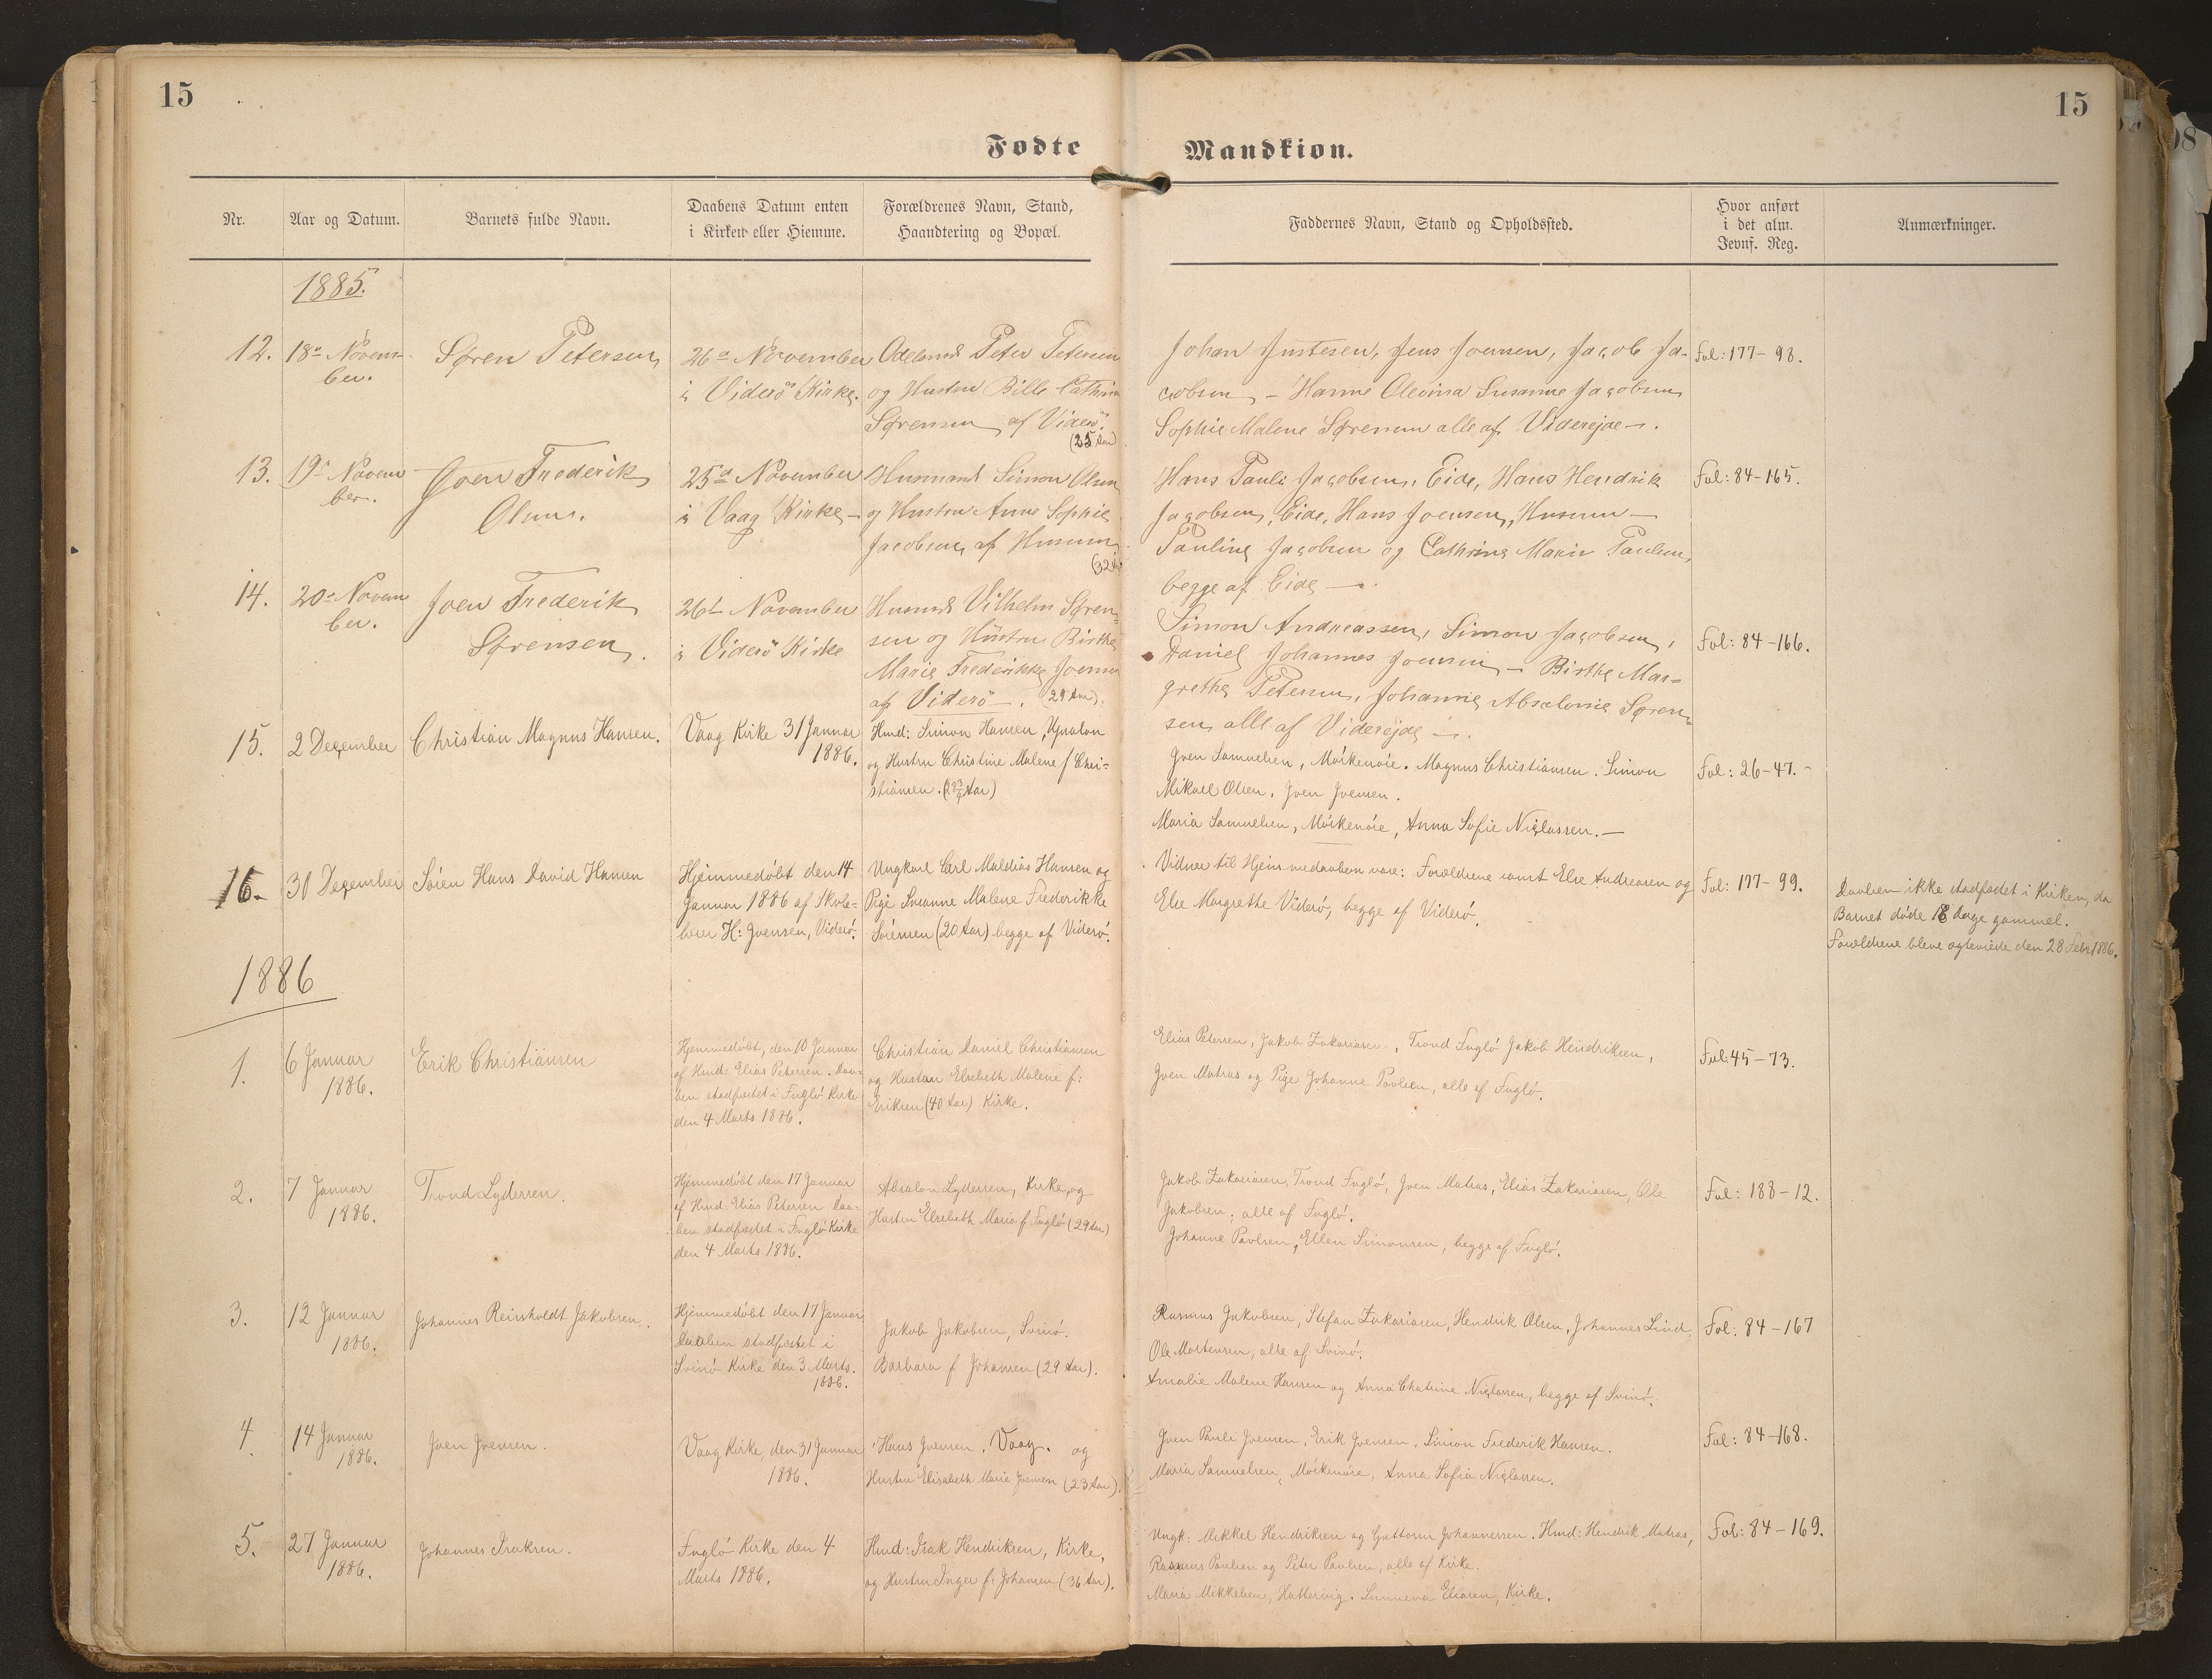 15
15
Fødte
Mandkiøn.
Nr.
Aar og Datum.
Barnets fulde Navn.
Daabens Datum enten
i Kirken eller Hiemme.
Forældrenes Navn, Stand,
Haandtering og Bopæl.
Faddernes Navn, Stand og Opholdssted.
Hvor anført
i det alm.
Jevnf. Reg.
Anmærkninger.
1885.
12.
18de Novem-
ber.
Søren Petersen
26de November
i Viderö Kirke.
Peter Petersen
og Hustru Bille Cathrine
Sørensen af Viderö.
(35 Aar)
Johan Justesen, Jens Joensen, Jacob Ja-
cobsen, – Hanne Olevina Susanne Jacobsen
Sophie Malene Sørensen alle af Viderejde –.
Fol: 177-98.
13.
19de Novem
ber.
Joen Frederik
Olsen.
25de November
i Vaag Kirke –
Husmand Simon Olsen
og Hustru Anne Sophie
Jacobsen, af Husum
(32 Aar
Hans Pauli Jacobsen, Eide, Hans Hendrik
Jacobsen, Eide, Hans Joensen, Husum –
Pauline Jacobsen og Cathrine Marie Paulsen,
begge af Eide –.
Fol: 84-165.
14.
20de Novem
ber.
Joen Frederik
Sørensen.
26de November
i Viderö Kirke
Husmd Vilhelm Søren-
sen og Hustru Birthe
Marie Frederikke Joensen
af Viderö –. (29 Aar).
Simon Andreassen, Simon Jacobsen,
Daniel Johannes Joensen – Birthe Mar-
grethe Petersen, Johanne Absalonie Søren-
sen, alle af Viderejde –.
Fol: 84-166.
15.
2 December
Christian Magnus Hansen.
Vaag Kirke 31 Januar
1886.
Hmd: Simon Hansen,
og Hustru Christine Malene f Chri-
stiansen. Aar)
Joen Samuelsen, Mórkenóre. Magnus Christiansen. Simon
Mikael Olsen. Joen Joensen.
Maria Samuelsen, Mórkenóre, Anna Sofie Niclassen. –
Fol: 26-47.
16.
30 December
Sóren Hans David Hansen
Hjemmedóbt den 14
Januar 1886 af Skole-
lærer H: Joensen, Videró.
Ungkarl Carl Mathias Hansen og
Pige Susanne Malene Frederikke
Sórensen (20 Aar) begge af Videró.
Vidner til Hjemmedaaben vare: Forældrene samt Else Andreasen og
Else Margrethe Viderö, begge af Viderö.
Fol: 177-99.
Daaben ikke stadfæstet i Kirken, da
Barnet døde 18 dage gammel.
Forældrene bleve ægteviede den 28 Febr 1886.
1886
1.
6 Januar
1886.
Erik Christiansen
Hjemmedóbt, den 10 Januar
af Hmd: Elias Petersen. Daa-
ben stadfæstet i Fugló Kirke
den 4 Marts 1886.
Christian Daniel Christiansen
og Hustru Elsebeth Malene f:
Eriksen (40 Aar) Kirke.
Elias Petersen, Jakob Zakariasen, Trond Fugló Jakob Hendriksen,
Joen Matras og Pige Johanne Poulsen, alle af Fugló.
Fol: 45-73.
2.
7 Januar
1886.
Trond Lydersen.
Hjemmedóbt den 17 Januar
af Hmd: Elias Petersen Daa-
ben stadfæstet i Fugló Kirke
den 4 Marts 1886.
Absalon Lydersen, Kirke, og
Hustru Elsebeth Maria f Fugló (29 Aar)
Jakob Zakariasen, Trond Fugló, Joen Matras, Elias Zakariasen, Ole
Jakobsen; alle af Fugló.
Johanne Poulsen, Ellen Simonsen, begge af Fugló.
Fol: 188-12.
3.
12 Januar
1886.
Johannes Reinholdt Jakobsen.
Hjemmedóbt den 17 Januar
Daaben stadfæstet i
Svinó Kirke den 3 Marts.
1886.
Jakob Jakobsen, Svinó.
Barbara f Johansen (29 Aar).
Rasmus Jakobsen, Stefan Zakariasen, Hendrik Olsen, Johannes Lind,
Ole Mortensen, alle af Svinó.
Amalie Malene Hansen og Anna Chatrine Niclassen, begge af Svinó.
Fol: 84-167
4.
14 Januar
1886.
Joen Joensen.
Vaag Kirke, den 31 Januar
1886.
Hans Joensen, Vaag. og
Hustru Elisabeth Marie Joensen (23 Aar).
Joen Pauli Joensen, Erik Joensen, Simon Frederik Hansen.
Maria Samuelsen, Mórkenóre, Anna Sofia Niclassen.
Fol: 84-168.
5.
27 Januar
1886.
Johannes Isaksen.
Fugló Kirke den 4
Marts 1886.
Hmd: Isak Hendriksen, Kirke,
og Hustru Inger f: Johansen (36 Aar).
Ungk: Mikkel Hendriksen og Guttorm Johannessen. Hmd: Hendrik Matras,
Rasmus Poulsen og Peter Poulsen, alle af Kirke.
Maria Mikkelsen, Hattervig. Sunneva Eliasen, Kirke.
Fol: 84-169.